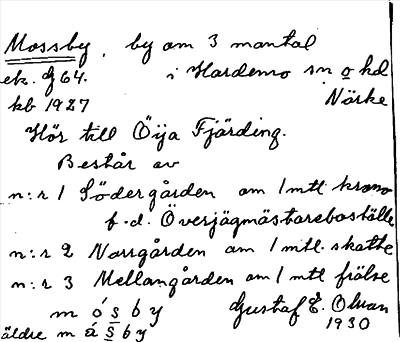 Mossby, by om 3 mantal
ek. g 64. i Hardemo sn o hd
kb 1987 Närke
Hör till Öija Fjärding.
Består av
n:r 1 Södergården om 1 mtl krono
f.d. Överjägmästareboställe
n:r 2 Norrgården om 1 mtl. skatte
n:r 3 Mellangården om 1 mtl frälse
m ó s b y Gustaf E. Olsan
äldre m á s b y 1930